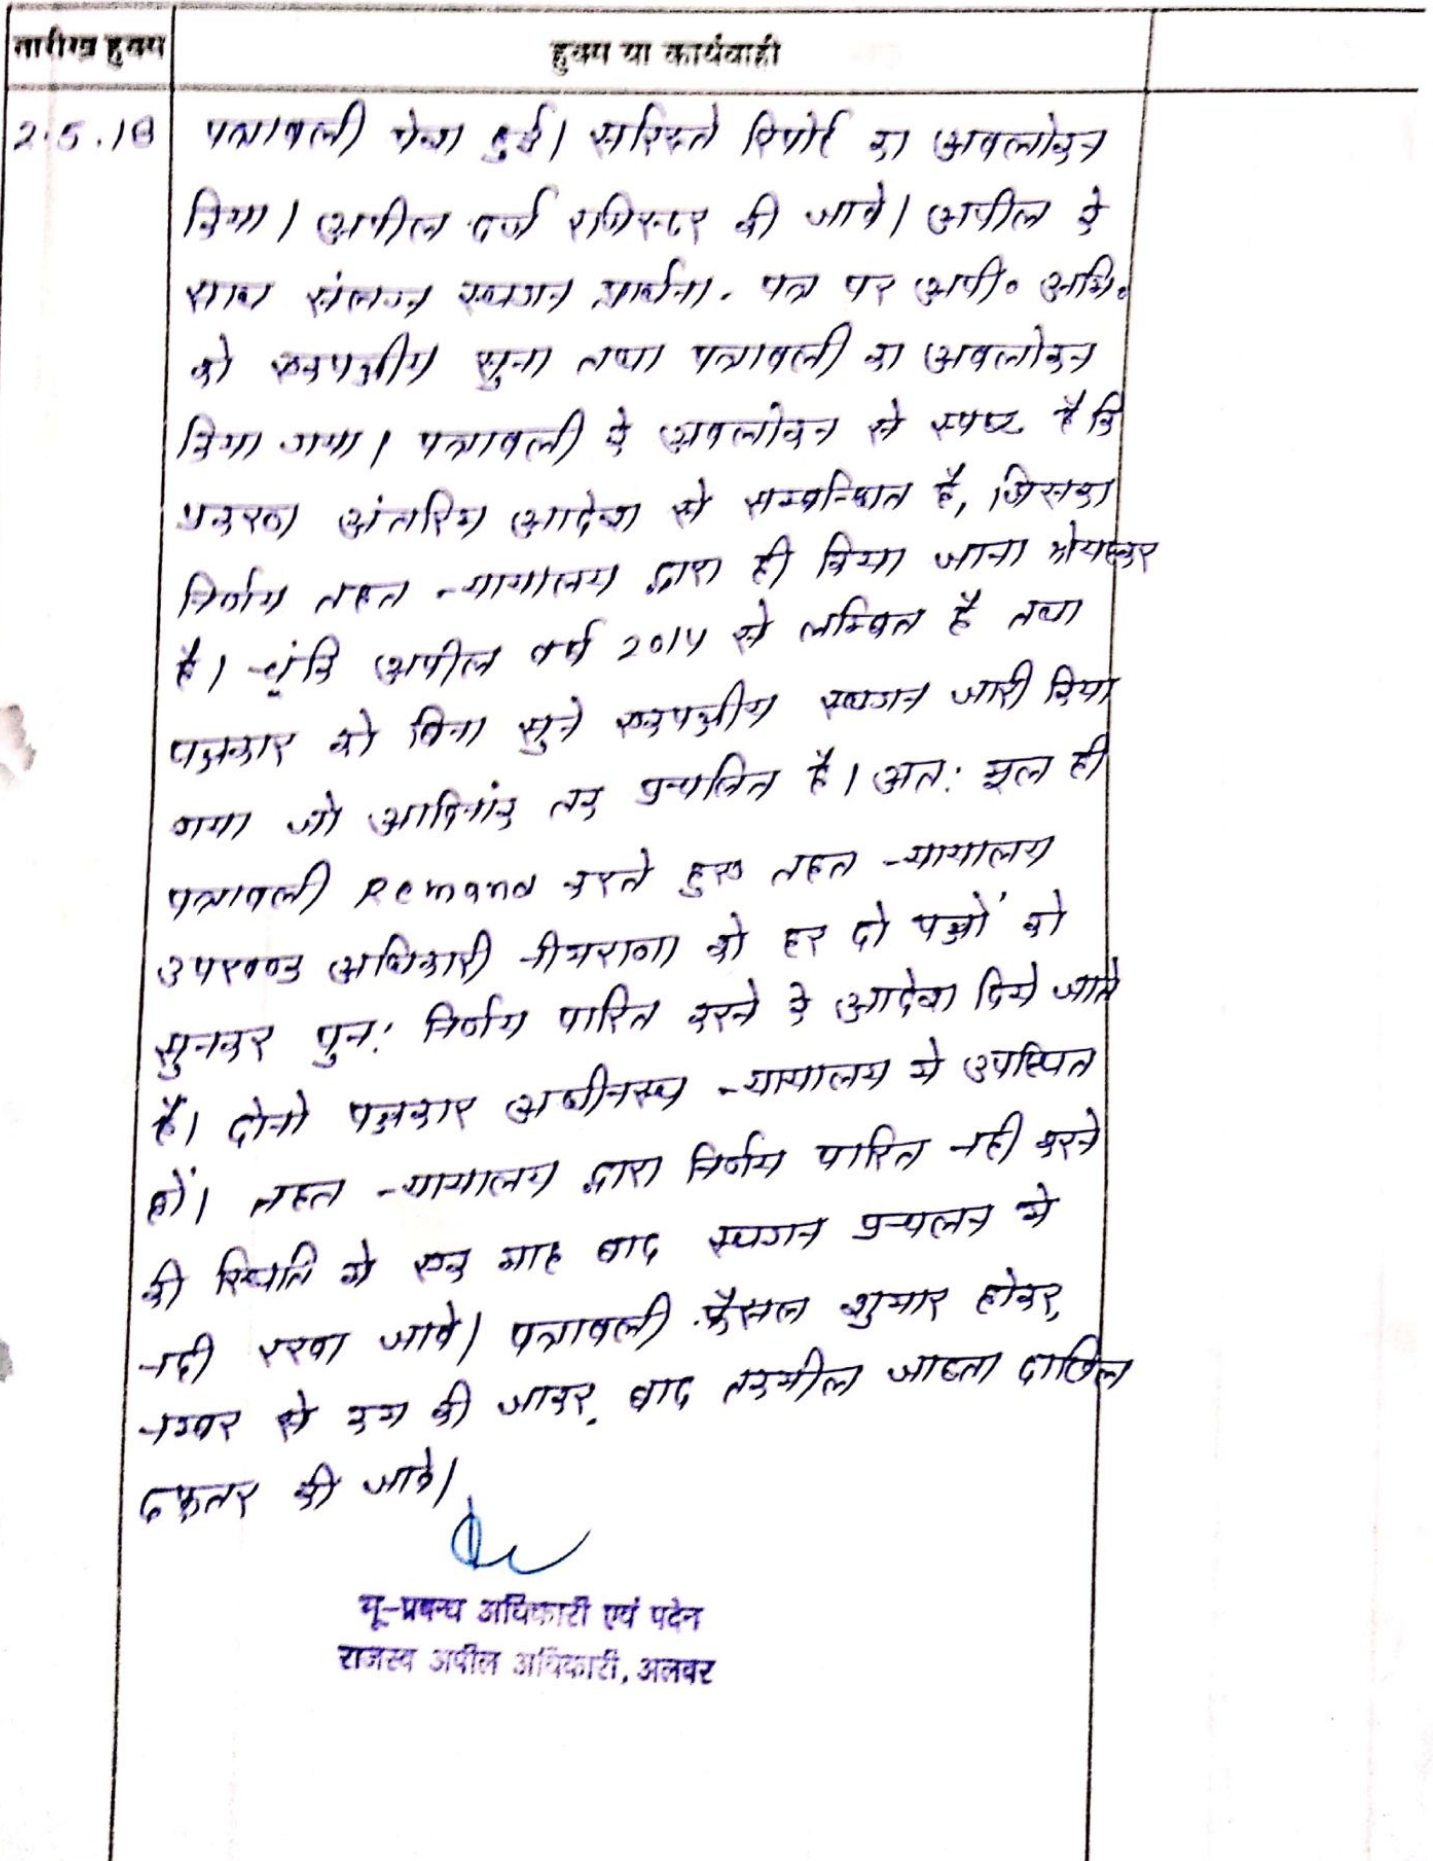 तारीख हुक्म
हुक्म या कार्यवाही
2.5.18 पत्रावली पेश हुई। सरिश्ते रिपोर्ट का अवलोकन
किया। अपील दर्ज रजिस्टर की जावे। अपील के
साथ संलग्न स्थगन प्रार्थना-पत्र पर अपी० अभि०
को एकपक्षीय सुना तथा पत्रावली का अवलोकन
किया गया। पत्रावली के अवलोकन से स्पष्ट है कि
प्रकरण अंतरिम आदेश से सम्बन्धित है, जिसका
निर्णय तहत न्यायालय द्वारा ही किया जाना श्रेयस्कर
है। चूंकि अपील वर्ष 2014 से लम्बित है तथा
पक्षकार को बिना सुने एकपक्षीय स्थगन जारी किया
गया जो आदिनांक तक प्रचलित है। अतः मूल ही
पत्रावली Remand करते हुए तहत न्यायालय
उपखण्ड अधिकारी नीमराना को हर दो पक्षों को
सुनकर पुन: निर्णय पारित करने के आदेश दिये जाते
हैं। दोनो पक्षकार अधीनस्थ न्यायालय मे उपस्थित
हों। तहत न्यायालय द्वारा निर्णय पारित नही करने
की स्थिति मे एक माह बाद स्थगन प्रचलन मे
नही रखा जावे। पत्रावली फैसल शुमार होकर,
नम्बर से कम की जाकर, बाद तकमील जाब्ता दाखिल
दफ्तर की जावे।
भू-प्रबन्ध अधिकारी एवं पदेन
राजस्व अपील अधिकारी, अलवर